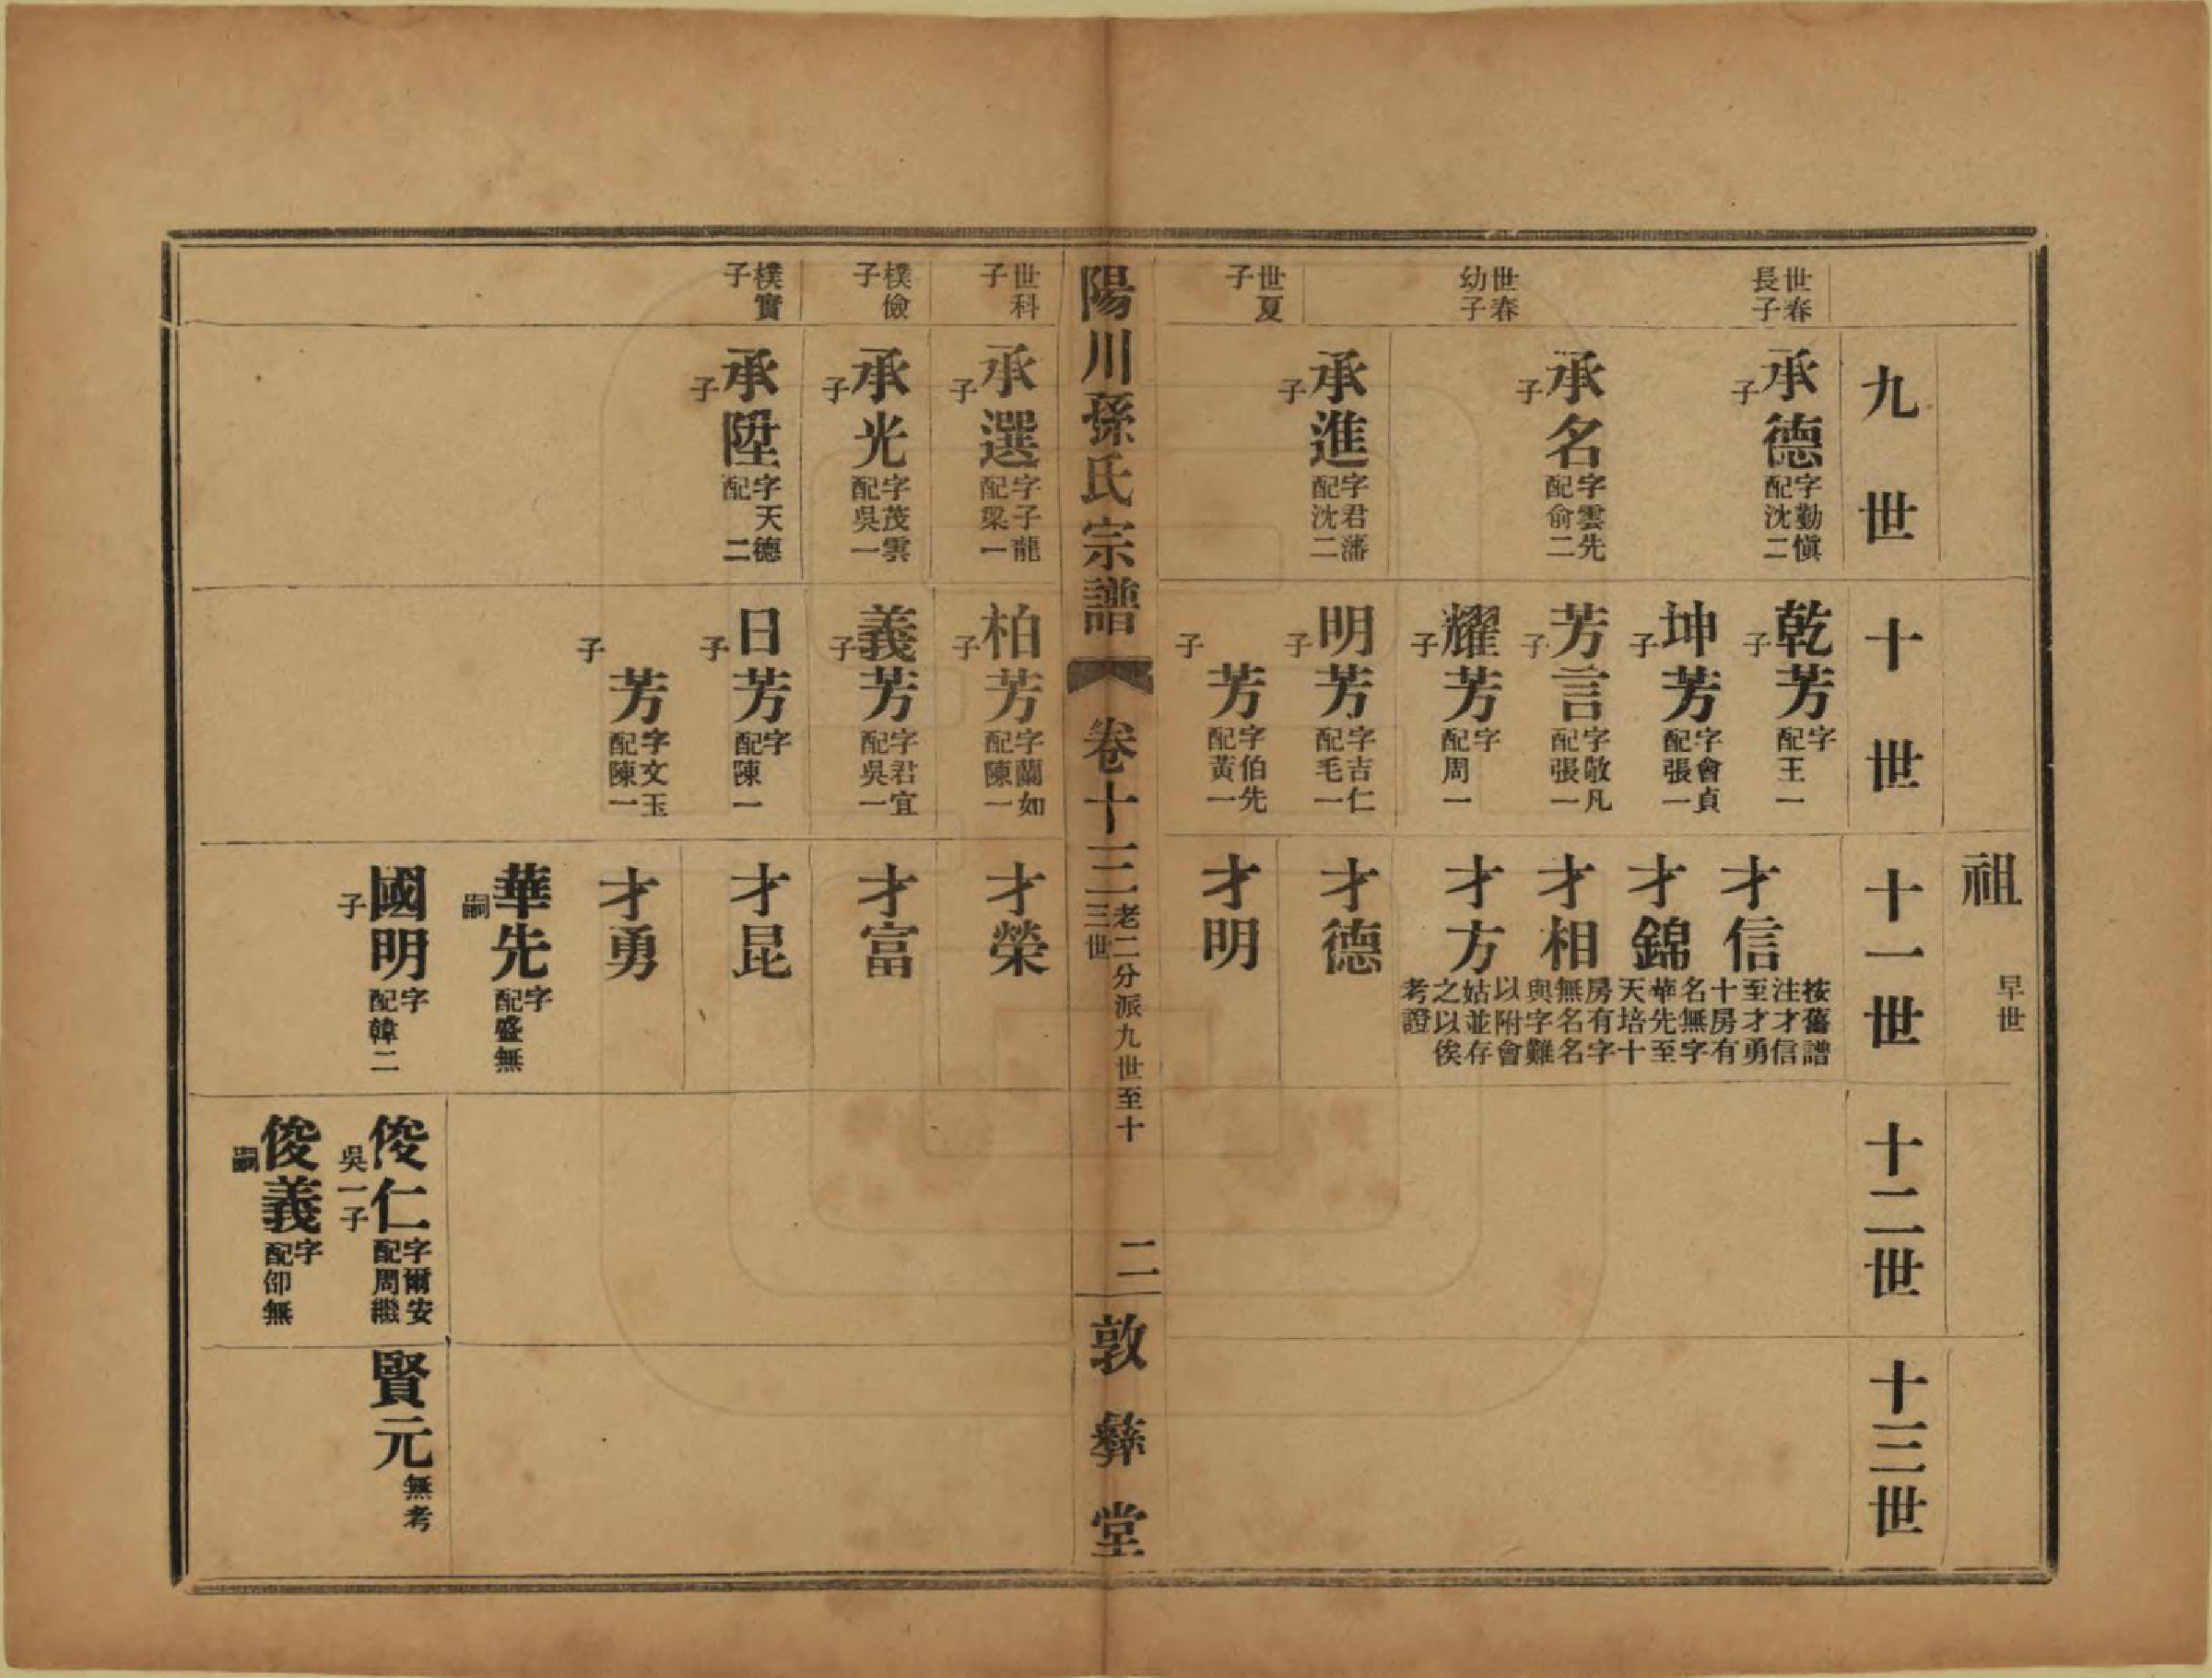 祖
早世
九世
十世
十一世
十二世
十三世
世春長子
承德
字勤愼
配沈二
子
乾芳
字
配王一
子
才信
按舊譜
注才信
至才勇
十房有
名無字
華先至
天培十
房有字
無名名
與字難
以附會
姑並存
之以俟
考證
坤芳
字會貞
配張一
子
才錦
世春幼子
承名
字雲先
配俞二
子
芳言
字敬凡
配張一
子
才相
耀芳
字
配周一
子
才方
世夏子
承進
字君藩
配沈二
子
明芳
字吉仁
配毛一
子
才德
芳
字伯先
配黃一
子
才明
陽川孫氏宗譜
卷十三
老二分派九世至十三世
二
敦彝堂
世科子
承選
字子龍
配梁一
子
柏芳
字蘭如
配陳一
子
才榮
樸儉子
承光
字茂雲
配吳一
子
義芳
字君宜
配吳一
子
才富
樸實子
承陞
字天德
配 二
子
日芳
字
配陳一
子
才昆
芳
字文玉
配陳一
子
才勇
華先
字
配盛無
嗣
國明
字
配韓二
子
俊仁
字爾安
配周繼
吳一子
賢元
無考
俊義
字
配邵無
嗣